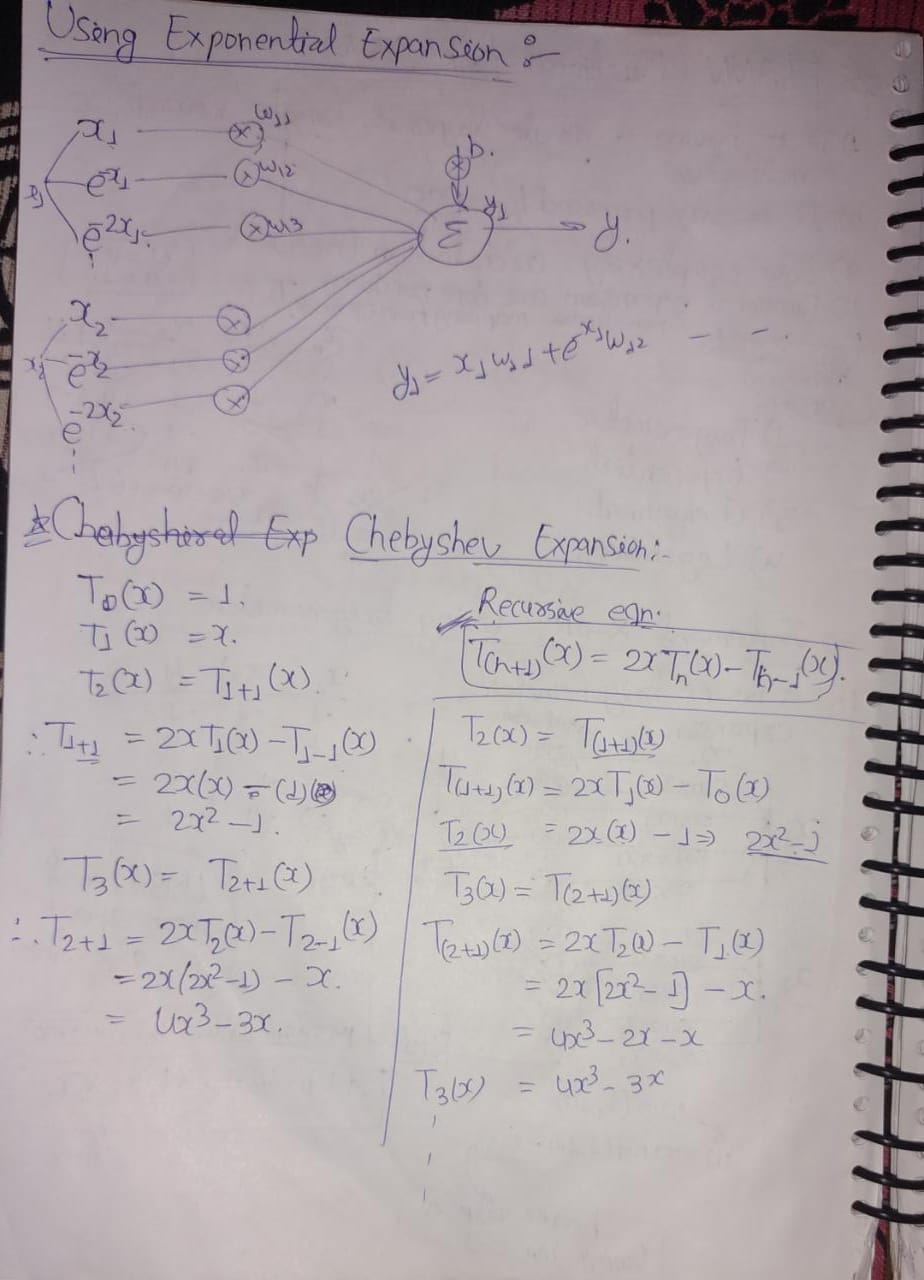 Using Exponential Expansion :-
x₁ ⊗ w₁₁
x₁ e^x₁ ⊗ w₁₂
e^-2x₁ ⊗ w₁3
b.
Σ y₁ → y.
x₂ ⊗
x₂ e^-x₂ ⊗
e^-2x₂ ⊗
y₁ = x₁w₁₁ + e^x₁w₁₂ - -
Exp Chebyshev Expansion:-
T₀(x) = 1.
T₁(x) = x.
T₂(x) = T₁₊₁(x).
∴ T₁₊₁ = 2xT₁(x) - T₁₋₁(x)
= 2x(x) - (1)
= 2x² - 1.
T₃(x) = T₂₊₁(x)
∴ T₂₊₁ = 2xT₂(x) - T₂₋₁(x)
= 2x(2x²-1) - x.
= 4x³ - 3x.
Recursive eqn.
T(n+1)(x) = 2xTₙ(x) - Tₙ₋₁(x).
T₂(x) = T(1+1)(x)
T(1+1)(x) = 2xT₁(x) - T₀(x)
T₂(x) = 2x(x) - 1 ⇒ 2x²-1
T₃(x) = T(2+1)(x)
T(2+1)(x) = 2xT₂(x) - T₁(x)
= 2x[2x²-1] - x.
= 4x³ - 2x - x
T₃(x) = 4x³ - 3x